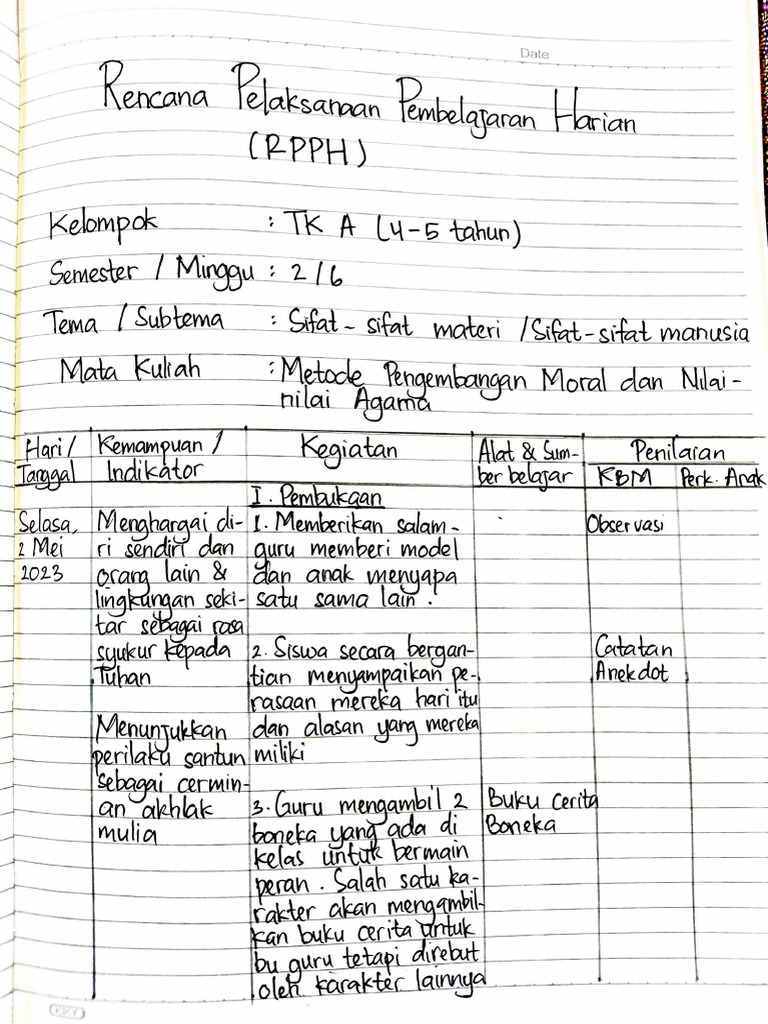 Date
Rencana Pelaksanaan Pembelajaran Harian
(RPPH)
Kelompok : TK A (4-5 tahun)
Semester / Minggu : 2/6
Tema / Subtema : Sifat-sifat materi /Sifat-sifat manusia
Mata Kuliah : Metode Pengembangan Moral dan Nilai-
nilai Agama
Hari/
Tanggal
Kemampuan /
Indikator
Kegiatan
Alat & Sum-
ber belajar
Penilaian
KBM
Perk. Anak
Selasa,
2 Mei
2023
Menghargai di-
ri sendiri dan
orang lain &
lingkungan seki-
tar sebagai rasa
syukur kepada
Tuhan
Menunjukkan
perilaku santun
sebagai cermin-
an akhlak
mulia
I. Pembukaan
1. Memberikan salam-
guru memberi model
dan anak menyapa
satu sama lain.
2. Siswa secara bergan-
tian menyampaikan pe-
rasaan mereka hari itu
dan alasan yang mereka
miliki
3. Guru mengambil 2
boneka yang ada di
kelas untuk bermain
peran. Salah satu ka-
rakter akan mengambil-
kan buku cerita untuk
bu guru tetapi direbut
oleh karakter lainnya
Buku Cerita
Boneka
Observasi
Catatan
Anekdot
KKY